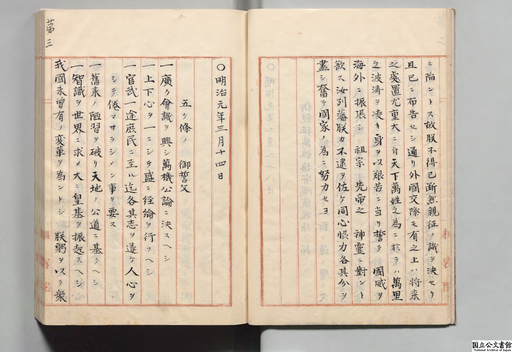 ニ陥ントス故朕不得已断然親征ノ議ヲ決セリ
且已ニ布告セシ通リ外國交際モ有之上ハ将来
之處置尤重大ニ付天下萬姓之為ニ於テハ萬里
之波濤ヲ凌キ身ヲ以艱苦ニ当リ誓テ國威ヲ
海外ニ振張シ 祖宗 先帝之 神靈ニ對ント
欲ス汝列藩朕カ不逮ヲ佐ケ同心協力各其分ヲ
盡シ奮テ國家ノ為ニ努力セヨ
第三
〇明治元年三月十四日
五ヶ條ノ 御誓文
一廣ク會議ヲ興シ萬機公論ニ決スヘシ
一上下心ヲ一ニシテ盛ニ経綸ヲ行フヘシ
一官武一途庶民ニ至ル迄各其志ヲ遂ケ人心ヲ
シテ倦マサラシメン事ヲ要ス
一舊来ノ陋習ヲ破リ天地ノ公道ニ基クヘシ
一智識ヲ世界ニ求メ大ニ皇基ヲ振起スヘシ
我國未曾有ノ変革ヲ為ントシ 朕躬ヲ以テ衆
国立公文書館
National Archives of Japan